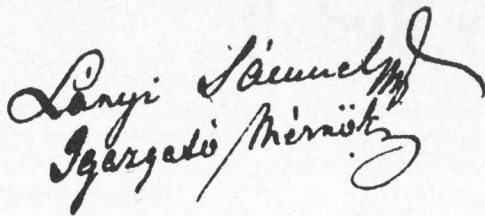 Lányi Sámuel mp
Igazgató Mérnök